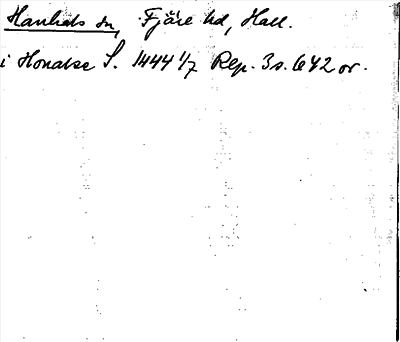 Hanhals sn, Fjäre hd, Hall.
i Honalse S. 1444 1/7 Rep. 3 s. 642 or.